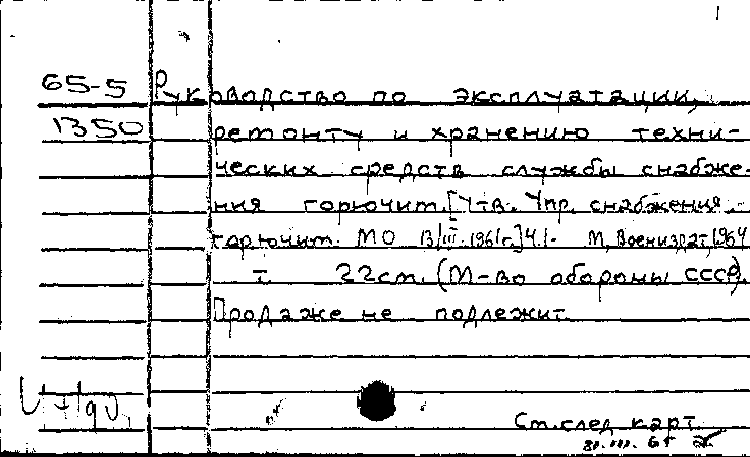 65-5 Руководство по эксплуатации,
1350 ремонту и хранению техни-
ческих средств службы снабже-
ния горючим. [Утв. Упр. снабжения
горючим. МО 13/III.1961г.] Ч.1- М, Воениздат, 1964
т. 22см. (М-во обороны СССР).
Продаже не подлежит
См. след. карт.